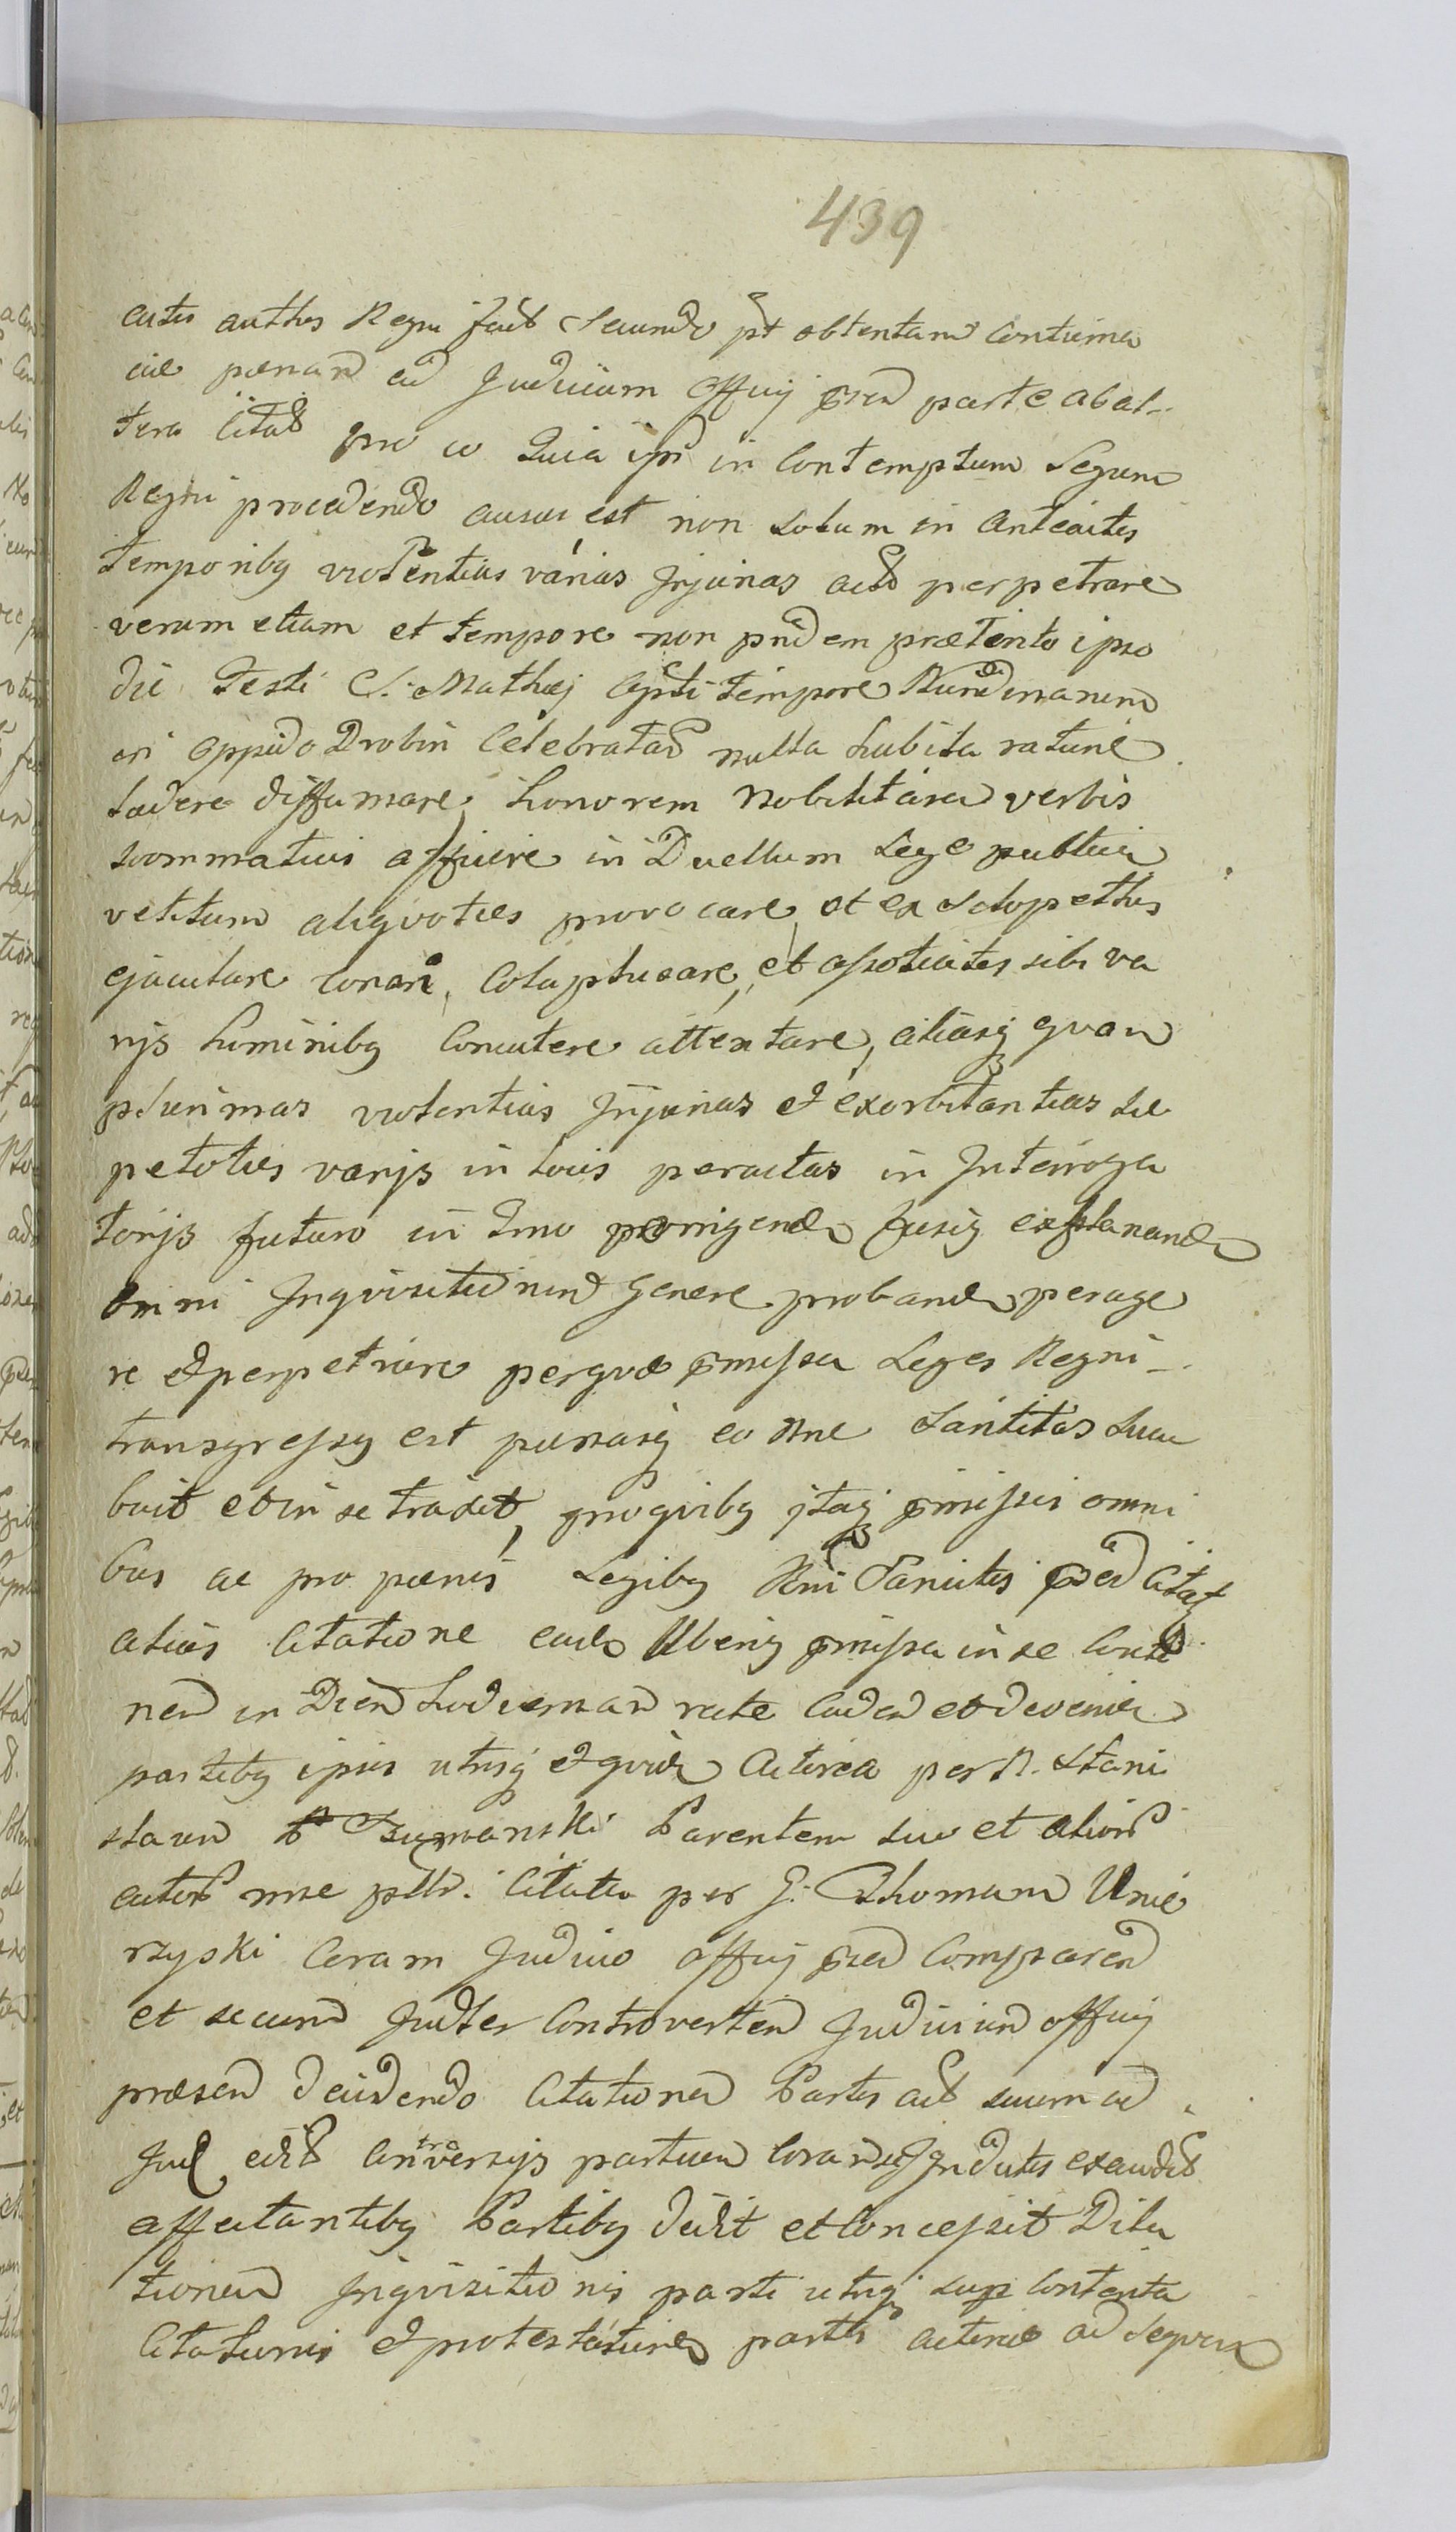 439
cutis authus Regni fact Secundo pt obtentam Contuma
ciae paenam ad Judicium Officij prsen parte ab al-
tera Citat pro eo Quia ipse in Contemptum Legum
Regni procedendo ausus est non solum in Anteactis
temporibq violentias varias Injurias act perpetrare
verum etiam et tempore non pridem praeterito ipso
die Festi S. Mathaej Apsti tempore Nundinarum
in Oppido Drobin Celebratar nulla habita ratione
laedere diffamare, honorem Nobilitarem verbis
scommaticis afficere in Duellum Lege publica
vetitum aliqvoties provocare, et ex Sclopethis
ejaculare conari, Colaphisare, et assotiatis sibi va
rijs hominibq Concutere attentare, aliasq qvam
plurimas violentias Injurias et exorbitantias sae
petoties varijs in locis peractas in Interroga
torijs futuro in Tmo porrigend fusiq explanand
Omni Inqvisitionum genere proband perage
re et perpetrare perqvae pmissa Leges Regni
transgressq est paenasq eo Nne Sancitas Luen
buit et in se traxit, pro qvibq itaq pmissis omni
bus ac pro paenis Legibq Rni Sancitis psed Citatq
alias Citatione ead Uberiq pmissa in se Conti
nen in Diem hodiernam recte Caden et devenien
partibq ipsis utrisq et qvid Actorea per N. Stani
slaum Szumanski Parentem suu et alior
actor nne pllr. Citata per G. Thomam Unie
rzyski Coram Judicio Officij psen Comparen
et secum Judter Controverten Judicium officij
praesen decidendo Citationem Partis act suum ad
Jud edit Controversijs partium Coram se Inductis exaudit
affectantibq Partibq dedit et Concessit Dila
tionem Inqvisitionis parti utriq sup Contenta
Citationis et protestation partis actoreae ad seqven